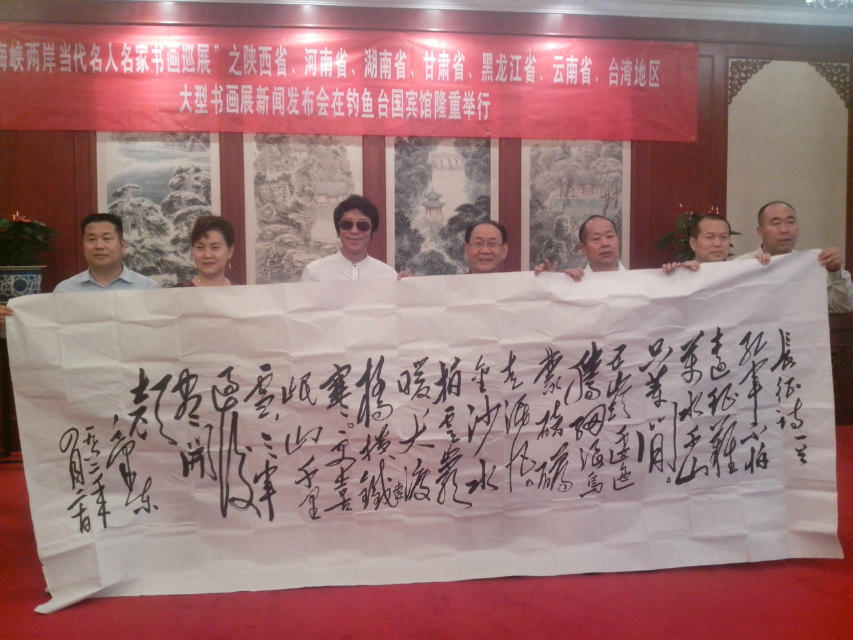 海峡两岸当代名人名家书画巡展”之陕西省、河南省、湖南省、甘肃省、黑龙江省、云南省、台湾地区
大型书画展新闻发布会在钓鱼台国宾馆隆重举行
長征诗一首
红军不怕
远征難
万水千山
只等闲。
五岭逶迤
腾细浪烏
蒙磅礴
走泥丸。
金沙水
拍雲崖
暖大渡
橋横鐵索
寒更喜
岷山千里
雪三军
过後
尽開
颜
毛泽东
一九六二年
四月二十日